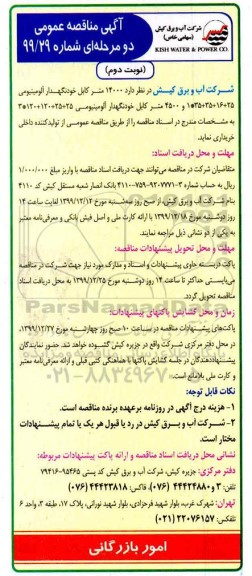 شرکت آب و برق کیش
(سهامی خاص)
KISH WATER & POWER CO.
آگهی مناقصه عمومی
دو مرحله‌ای شماره ۹۹/۲۹
(نوبت دوم)
شرکت آب و برق کیش در نظر دارد ۱۴۰۰۰ متر کابل خودنگهدار آلومینیومی
و ۴۵۰۰ متر کابل خودنگهدار آلومینیومی
به مشخصات مندرج در اسناد مناقصه را از طریق مناقصه عمومی از تولیدکننده داخلی
خریداری نماید.
مهلت و محل دریافت اسناد:
متقاضیان شرکت در مناقصه می‌توانند جهت دریافت اسناد مناقصه با واریز مبلغ ۱/۰۰۰/۰۰۰
ریال به حساب شماره بانک انصار شعبه مستقل کیش کد ۴۱۱۰
بنام شرکت آب و برق کیش، از صبح روز سه‌شنبه مورخ ۱۳۹۹/۱۲/۱۲ لغایت ساعت ۱۴
روز دوشنبه مورخ ۱۳۹۹/۱۲/۱۸ با ارائه کارت ملی و اصل فیش بانکی و معرفی‌نامه معتبر
به یکی از دو نشانی ذیل مراجعه نمایند.
مهلت و محل تحویل پیشنهادات مناقصه:
پاکت دربسته حاوی پیشنهادات و اسناد و مدارک مورد نیاز جهت شرکت در مناقصه
می‌بایستی حداکثر تا ساعت ۱۴ روز دوشنبه مورخ ۱۳۹۹/۱۲/۲۵ به محل دریافت اسناد
مناقصه تحویل گردد.
زمان و محل گشایش پاکتهای پیشنهادات:
پاکت‌های پیشنهادات مناقصه در ساعت ۱۰ صبح روز چهارشنبه مورخ ۱۳۹۹/۱۲/۲۷
در محل دفتر مرکزی شرکت واقع در جزیره کیش گشوده خواهد شد. حضور نمایندگان
پیشنهاددهندگان در جلسه گشایش پاکتها با هماهنگی کتبی قبلی و ارائه معرفی‌نامه معتبر
و کارت ملی بلامانع است.
نکات قابل توجه:
۱- هزینه درج آگهی در روزنامه برعهده برنده مناقصه است.
۲- شرکت آب و برق کیش در رد یا قبول هر یک یا تمام پیشنهادات
مختار است.
نشانی محل دریافت اسناد مناقصه و ارائه پاکت پیشنهادات مربوطه:
دفتر مرکزی: جزیره کیش، شرکت آب و برق کیش کد پستی ۹۵۴۶۵-۷۹۴۱۶
تلفن: ۳ و ۴۴۴۲۴۸۸۰ (۰۷۶)، فاکس: ۴۴۴۲۳۸۱۸ (۰۷۶)
تهران: شهرک غرب، بلوار شهید فرحزادی، بلوار شهید نورانی، پلاک ۱۷، طبقه ۳، واحد ۶
تلفکس: ۲۲۰۷۶۱۵۷ (۰۲۱)
امور بازرگانی
ParsNamadData
۰۲۱-۸۸۳۴۹۶۷۰